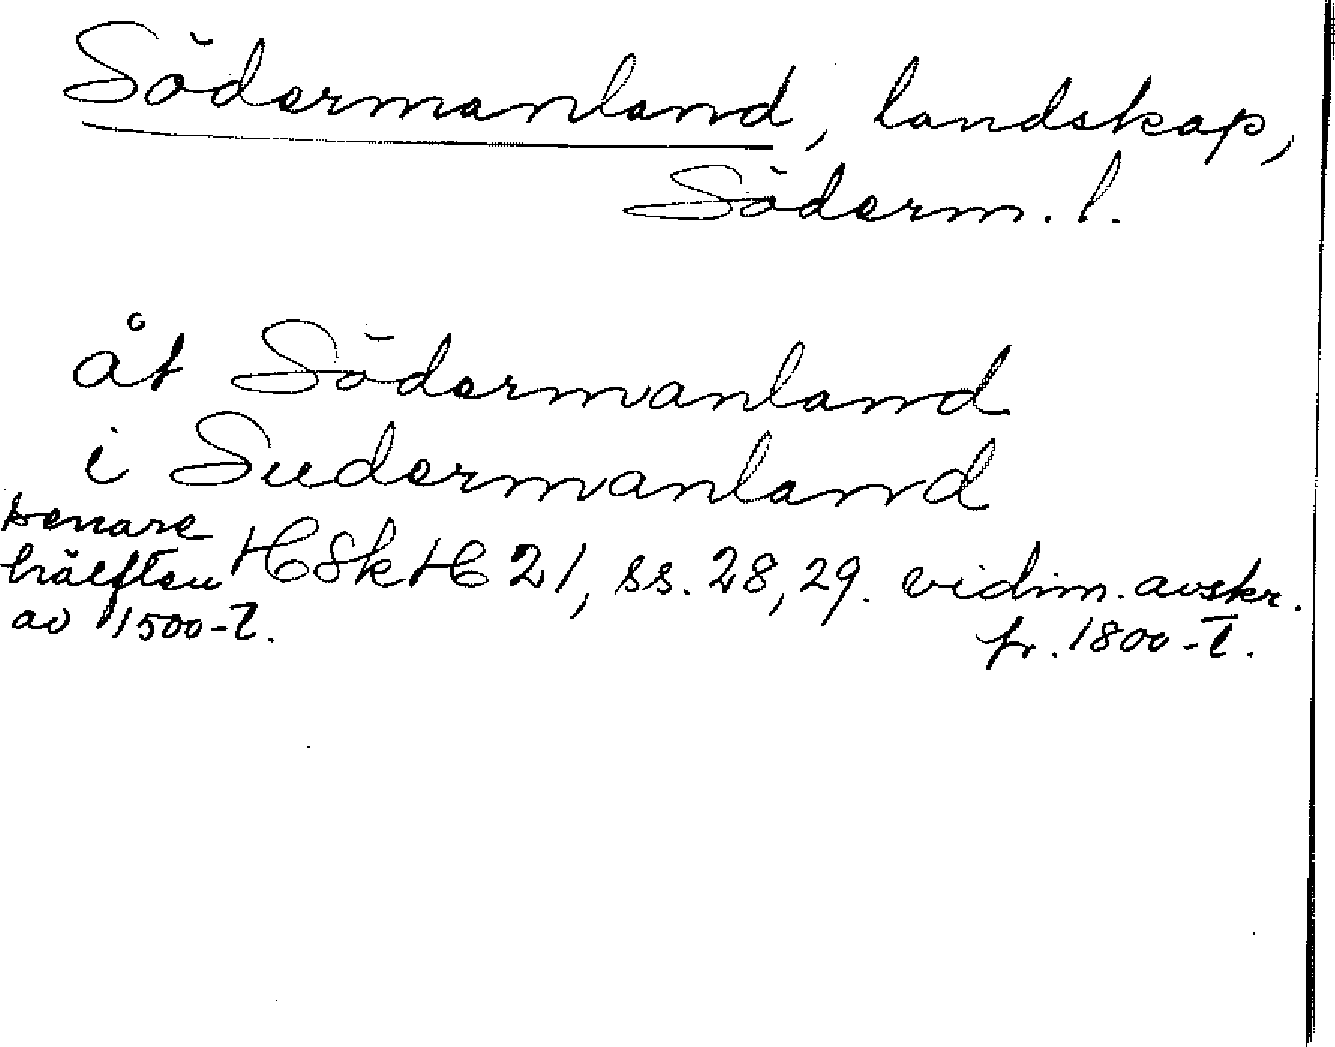 Södermanland, landskap,
Söderm. l.
åt Södermanland
i Sudermanland
senare
hälften HSkH 21, ss. 28, 29. vidim. avskr.
av 1500-t. fr. 1800-t.